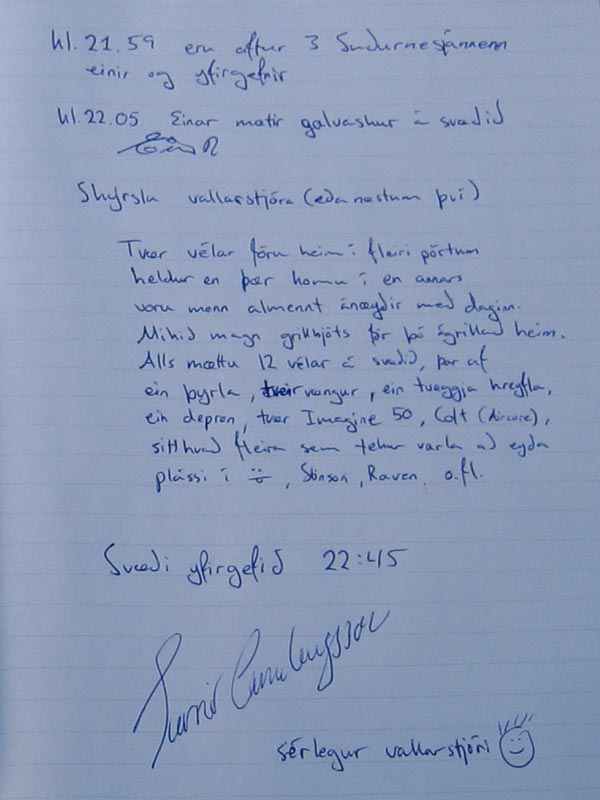 kl. 21.59 eru aftur 3 Suðurnesjamenn
einir og yfirgefnir
kl. 22.05 Einar mætir galvaskur á svæðið
Skýrsla vallarstjóra (eða næstum því)
Tvær vélar fóru heim í fleiri pörtum
heldur en þær komu í en annars
voru menn almennt ánægðir með daginn.
Mikið magn grillkjöts fór þó ógrillað heim.
Alls mættu 12 vélar á svæðið, þar af
ein þyrla, tveir vængur, ein tveggja hreyfla,
ein depron, tvær Imagine 50, Colt (Aircore),
sitthvað fleira sem tekur varla að eyða
plássi í, Stinson, Raven o.fl.
Svæði yfirgefið 22:45
sérlegur vallarstjóri